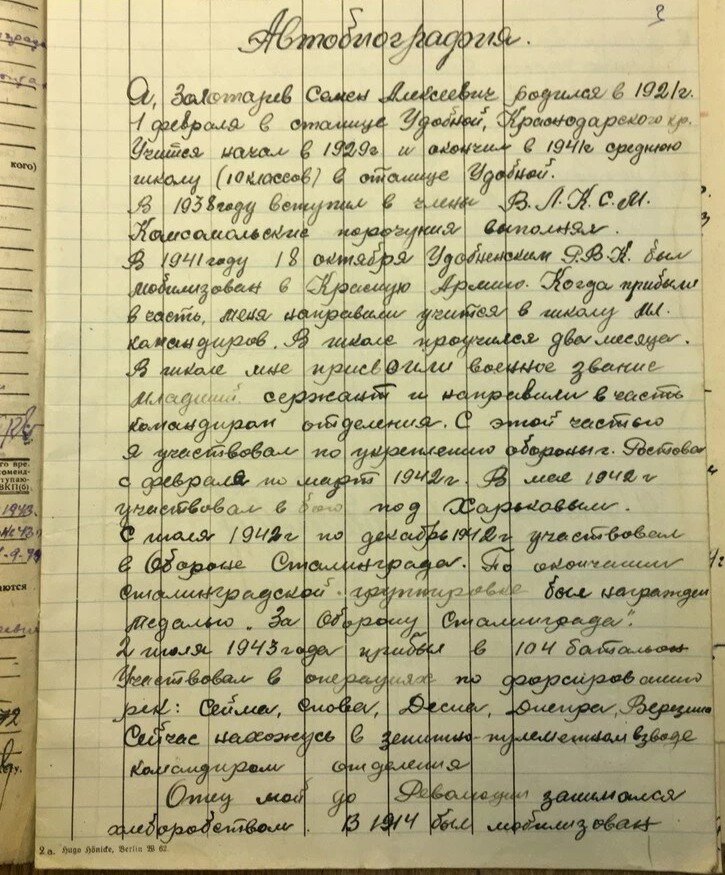 3
Автобиография.
Я, Золотарев Семен Алексеевич родился в 1921г.
1 февраля в станице Удобной, Краснодарского кр.
Учится начал в 1929г и окончил в 1941г среднюю
школу (10 классов) в станице Удобной.
В 1938году вступил в члены В.Л.К.С.М.
Комсомольские поручения выполнял.
В 1941году 18 октября Удобненским Р.В.К. был
мобилизован в Красную Армию. Когда прибыли
в часть, меня направили учится в школу мл.
командиров. В школе проучился два месяца.
В школе мне присвоили военное звание
младший сержант и направили в часть
командиром отделения. С этой частью
я участвовал по укреплению обороны г. Ростова
с февраля по март 1942г. В мае 1942г
участвовал в бою под Харьковым.
С июля 1942г по декабрь 1942г участвовал
в Обороне Сталинграда. По окончании
сталинградской группировке был награжден
медалью „За Оборону Сталинграда".
2 июля 1943года прибыл в 104 батальон
Участвовал в операциях по форсированию
рек: Сейма, Снова, Десна, Днепра, Березина
Сейчас нахожусь в зенитно-пулеметном взводе
командиром отделения
Отец мой до Революции занимался
хлеборобством. В 1914 был мобилизован
2a. Hugo Hönicke, Berlin W 62.
кого)
го вре.
оменд-
тупаю-
ВКП(б)
1943
аются